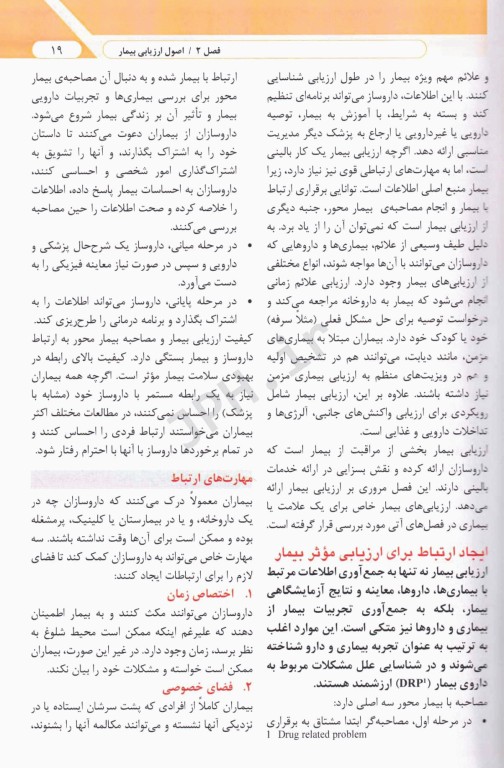 فصل ۲ / اصول ارزیابی بیمار
۱۹
و علائم مهم ویژه بیمار را در طول ارزیابی شناسایی
کنند. با این اطلاعات، داروساز می‌تواند برنامه‌ای تنظیم
کند و بسته به شرایط، با آموزش به بیمار، توصیه
دارویی یا غیردارویی یا ارجاع به پزشک دیگر مدیریت
مناسبی ارائه دهد. اگرچه ارزیابی بیمار یک کار بالینی
است، اما به مهارت‌های ارتباطی قوی نیز نیاز دارد، زیرا
بیمار منبع اصلی اطلاعات است. توانایی برقراری ارتباط
با بیمار و انجام مصاحبه‌ی بیمار محور، جنبه دیگری
از ارزیابی بیمار است که نمی‌توان آن را از یاد برد. به
دلیل طیف وسیعی از علائم، بیماری‌ها و داروهایی که
داروسازان می‌توانند با آن‌ها مواجه شوند، انواع مختلفی
از ارزیابی‌های بیمار وجود دارد. ارزیابی علائم زمانی
انجام می‌شود که بیمار به داروخانه مراجعه می‌کند و
درخواست توصیه برای حل مشکل فعلی (مثلاً سرفه)
خود یا کودک خود دارد. بیماران مبتلا به بیماری‌های
مزمن، مانند دیابت، می‌توانند هم در تشخیص اولیه
و هم در ویزیت‌های منظم به ارزیابی بیماری مزمن
نیاز داشته باشند. علاوه بر این، ارزیابی بیمار شامل
رویکردی برای ارزیابی واکنش‌های جانبی، آلرژی‌ها و
تداخلات دارویی و غذایی است.
ارزیابی بیمار بخشی از مراقبت از بیمار است که
داروسازان ارائه کرده و نقش بسزایی در ارائه خدمات
بالینی دارند. این فصل مروری بر ارزیابی بیمار ارائه
می‌دهد. ارزیابی‌های بیمار خاص برای یک علامت یا
بیماری در فصل‌های آتی مورد بررسی قرار گرفته است.
ایجاد ارتباط برای ارزیابی مؤثر بیمار
ارزیابی بیمار نه تنها به جمع‌آوری اطلاعات مرتبط
با بیماری‌ها، داروها، معاینه و نتایج آزمایشگاهی
بیمار، بلکه به جمع‌آوری تجربیات بیمار از
بیماری و داروها نیز متکی است. این موارد اغلب
به ترتیب به عنوان تجربه بیماری و دارو شناخته
می‌شوند و در شناسایی علل مشکلات مربوط به
داروی بیمار (DRP¹) ارزشمند هستند.
مصاحبه با بیمار محور سه اصلی دارد:
• در مرحله اول، مصاحبه‌گر ابتدا مشتاق به برقراری
1 Drug related problem
ارتباط با بیمار شده و به دنبال آن مصاحبه‌ی بیمار
محور برای بررسی بیماری‌ها و تجربیات دارویی
بیمار و تأثیر آن بر زندگی بیمار شروع می‌شود.
داروسازان از بیماران دعوت می‌کنند تا داستان
خود را به اشتراک بگذارند، و آنها را تشویق به
اشتراک‌گذاری امور شخصی و احساسی کنند،
داروسازان به احساسات بیمار پاسخ داده، اطلاعات
را خلاصه کرده و صحت اطلاعات را حین مصاحبه
بررسی می‌کنند.
• در مرحله میانی، داروساز یک شرح‌حال پزشکی و
دارویی و سپس در صورت نیاز معاینه فیزیکی را به
دست می‌آورد.
• در مرحله پایانی، داروساز می‌تواند اطلاعات را به
اشتراک بگذارد و برنامه درمانی را طرح‌ریزی کند.
کیفیت ارزیابی بیمار و مصاحبه بیمار محور به ارتباط
داروساز و بیمار بستگی دارد. کیفیت بالای رابطه در
بهبودی سلامت بیمار مؤثر است. اگرچه همه بیماران
نیاز به یک رابطه مستمر با داروساز خود (مشابه با
پزشک) را احساس نمی‌کنند، در مطالعات مختلف اکثر
بیماران می‌خواستند ارتباط فردی را احساس کنند و
در تمام برخوردها داروساز با آنها با احترام رفتار شود.
مهارت‌های ارتباط
بیماران معمولاً درک می‌کنند که داروسازان چه در
یک داروخانه، و یا در بیمارستان یا کلینیک، پرمشغله
بوده و ممکن است برای آن‌ها وقت نداشته باشند. سه
مهارت خاص می‌تواند به داروسازان کمک کند تا فضای
لازم را برای ارتباطات ایجاد کنند:
۱. اختصاص زمان
داروسازان می‌توانند مکث کنند و به بیمار اطمینان
دهند که علیرغم اینکه ممکن است محیط شلوغ به
نظر برسد، زمان وجود دارد. در غیر این صورت، بیماران
ممکن است خواسته و مشکلات خود را بیان نکند.
۲. فضای خصوصی
بیماران کاملاً از افرادی که پشت سرشان ایستاده یا در
نزدیکی آنها نشسته و می‌توانند مکالمه آنها را بشنوند،